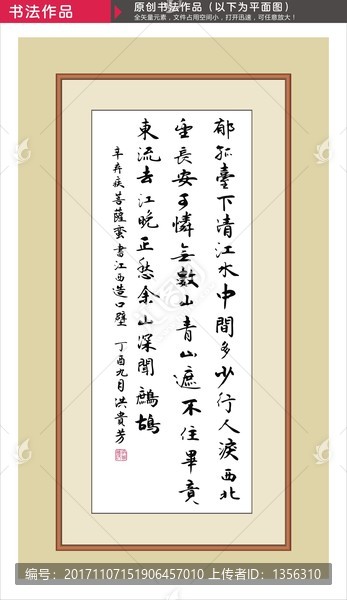 书法作品
原创书法作品（以下为平面图）
全矢量元素，文件占用空间小，打开迅速，可任意放大！
郁孤臺下清江水中間多少行人淚西北
望長安可憐無數山青山遮不住畢竟
東流去江晚正愁余山深聞鷓鴣
辛弃疾菩薩蠻書江西造口壁 丁酉九月洪貴芳
编号：20171107151906457010 上传者ID：1356310